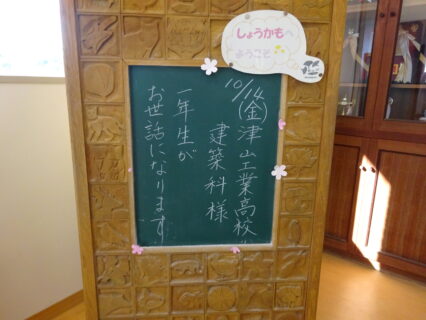 しょうかもへ
ようこそ
10/14(金)津山工業高校
建築科様
一年生が
お世話になります